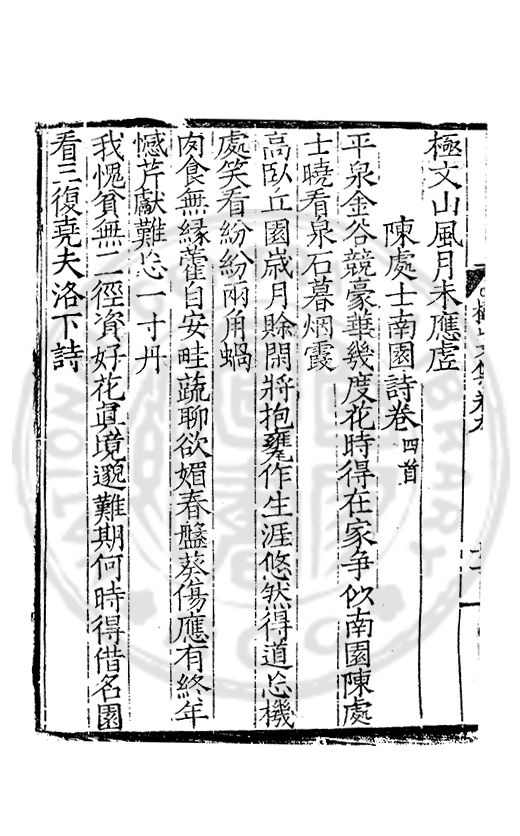 極文山風月未應虛
陳處士南園詩卷四首
平泉金谷競豪華幾度花時得在家爭似南園陳處
士曉看泉石暮烟霞
高臥丘園歳月賖閒將抱甕作生涯悠然得道忘機
處笑看紛紛兩角蝸
肉食無縁藿自安畦蔬聊欲媚春盤葵傷應有終年
憾芹獻難忘一寸丹
我愧貧無二徑資好花眞境邈難期何時得借名園
看三復堯夫洛下詩